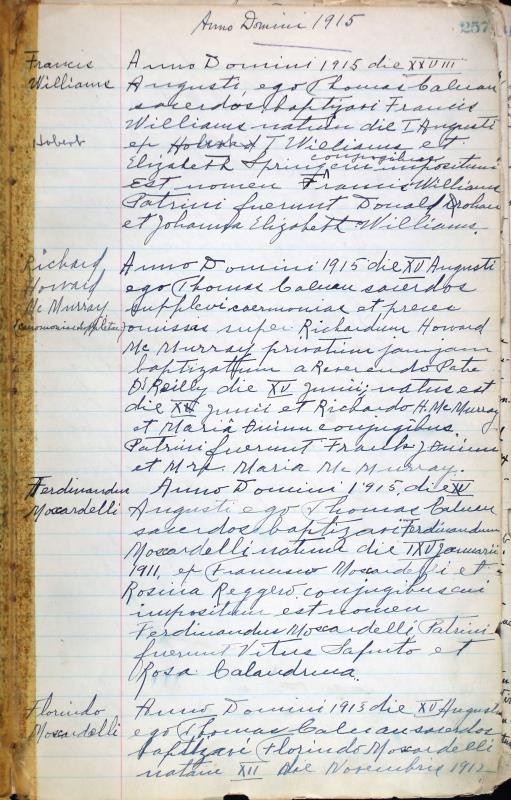 Anno Domini 1915
257
Francis
Williams
Anno Domini 1915 die XXVIII
Augusti, ego Thomas
sacerdos, baptizavi Francis
Williams natum die I Augusti
Hobert
ex T Williams et
conjugibus
Elizabeth cui impositum
Est nomen Francis Williams
Patrini fuerunt Donald
et Johanna Elizabeth Williams.
Richard
Howard
McMurray
Anno Domini 1915 die XV Augusti
ego Thomas sacerdos
supplevi caermonias et preces
omissas super Richardum Howard
McMurray privatim jam jam
baptizatum a Reverendo Patre
O'Reilly die XV Junii; natus est
die Junii et Richardo H. McMurray
et Maria Quinn conjugibus
Patrini fuerunt Frank J Quinn
et Mrs. Maria McMurray.
Ferdinandus
Moscardelli
Anno Domini 1915, die XV
Augusti ego Thomas
sacerdos baptizavi Ferdinandum
Moscardelli natum die Januarii
1911, ex Francisco Moscardelli et
Rosina Reggero conjugibus cui
impositum est nomen
Ferdinandus Moscardelli Patrini
fuerunt Vitus Saputo et
Rosa Calandrina.
Florindo
Moscardelli
Anno Domini 1915 die XV Augusti
ego Thomas sacerdos
baptizavi Florindo Moscardelli
natum XII die Novembris 1912